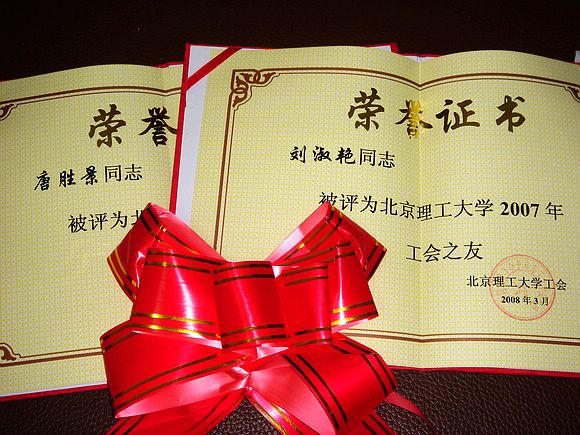 荣誉
唐胜景同志
被评为北
荣誉证书
刘淑艳同志
被评为北京理工大学 2007 年
工会之友
北京理工大学工会
2008 年 3 月